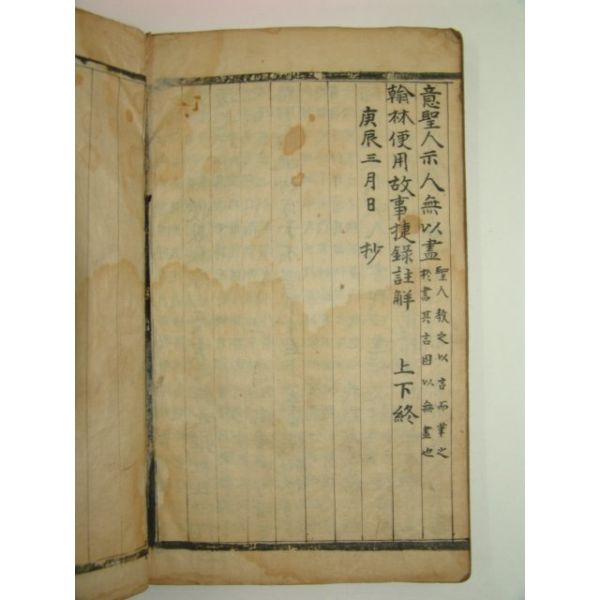 意聖人示人無以盡
聖人教之以言而筆之
於書其言因以無盡也
翰林便用故事捷錄註解 上下終
庚辰三月日 抄